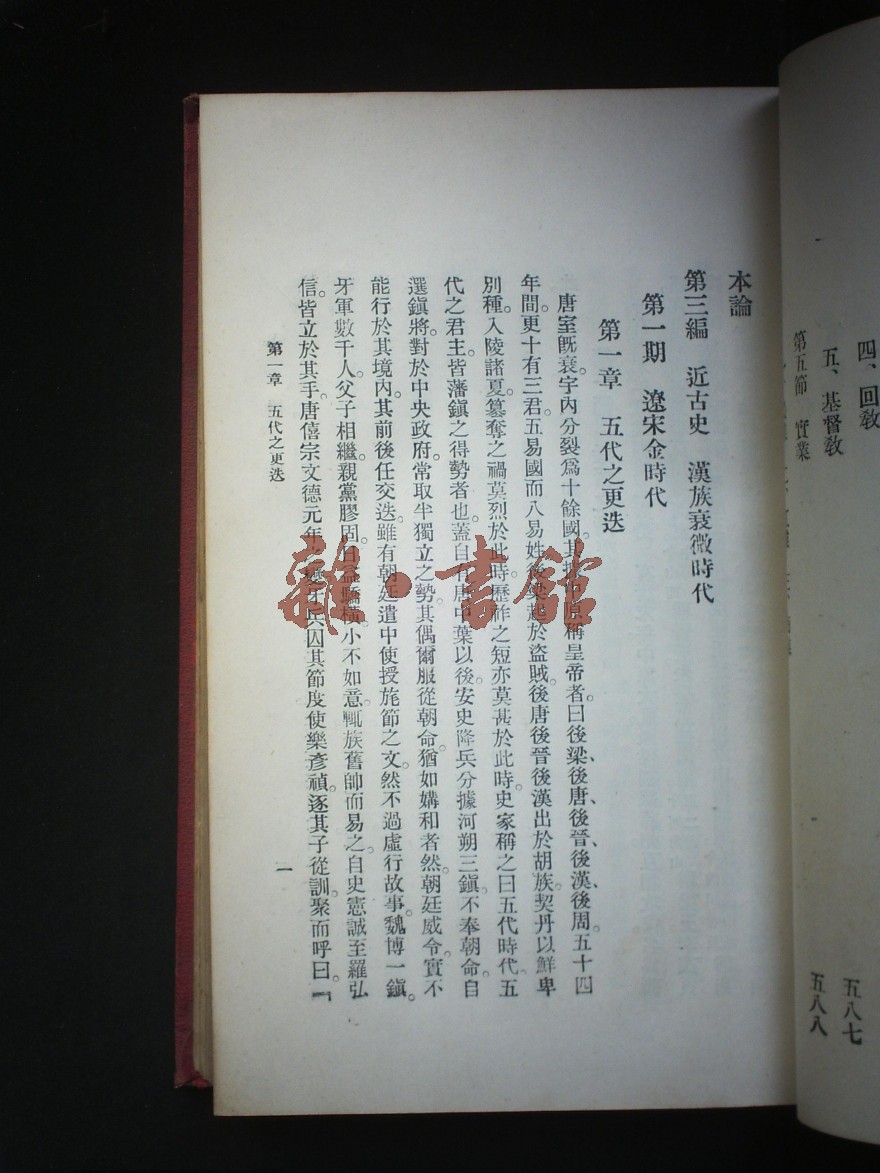 四、回敎
五八七
五、基督敎
五八八
第五節　實業
本論
第三編　近古史　漢族衰微時代
第一期　遼宋金時代
第一章　五代之更迭
唐室旣衰。宇內分裂爲十餘國。其據中原稱皇帝者。曰後梁、後唐、後晉、後漢、後周。五十四
年間。更十有三君。五易國而八易姓。後梁起於盜賊。後唐後晉後漢出於胡族。契丹以鮮卑
別種。入陵諸夏。簒奪之禍。莫烈於此時。歷祚之短。亦莫甚於此時。史家稱之曰五代時代。五
代之君主。皆藩鎭之得勢者也。蓋自有唐中葉以後。安史降兵。分據河朔三鎭。不奉朝命。自
選鎭將。對於中央政府。常取半獨立之勢。其偶爾服從朝命。猶如媾和者然。朝廷威令。實不
能行於其境內。其前後任交迭。雖有朝廷遣中使授旄節之文。然不過虛行故事。魏博一鎭。
牙軍數千人。父子相繼。親黨膠固。日益驕橫。小不如意。輒族舊帥而易之。自史憲誠至羅弘
信。皆立於其手。唐僖宗文德元年。牙兵囚其節度使樂彥禎。逐其子從訓。聚而呼曰。『
第一章　五代之更迭
一
雜·書館